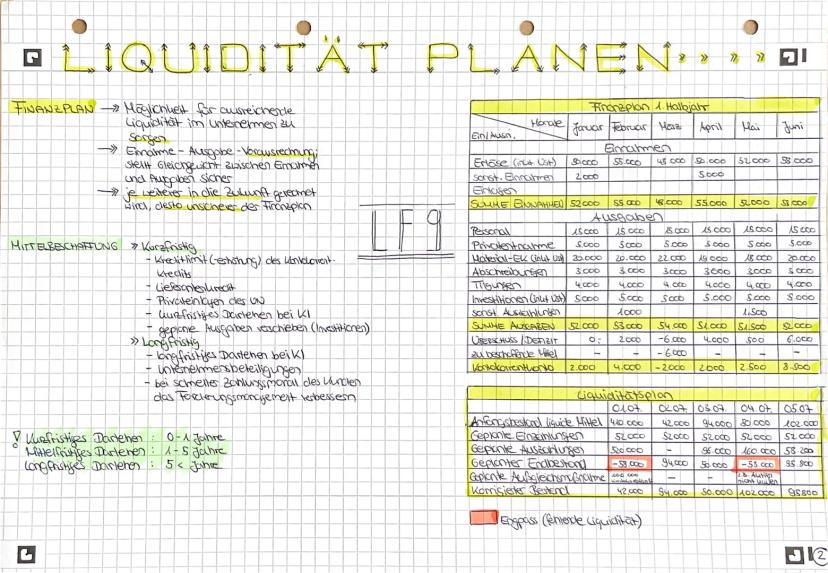 LIQUIDITÄT PLANEN
FINANZPLAN → Möglichkeit für ausreichende
Liquidität im Unternehmen zu
sorgen
→ Einnahme-Ausgabe-Vorausrechnung;
stellt Gleichgewicht zwischen Einnahmen
und Ausgaben sicher
→ je weiterer in die Zukunft gerechnet
wird, desto unsicherer der Finanzplan
LF9
MITTELBESCHAFFUNG » Kurzfristig
- Kreditlimit(-erhöhung) des Kontokorrent-
kredits
- Lieferantenkredit
- Privateinlagen des UN
- kurzfristiges Darlehen bei KI
- geplante Ausgaben verschieben (Investitionen)
» Langfristig
- langfristiges Darlehen bei KI
- Unternehmensbeteiligungen
- bei schneller Zahlungsmoral des Kunden
das Forderungsmanagement verbessern
! Kurzfristiges Darlehen : 0-1 Jahre
Mittelfristiges Darlehen : 1-5 Jahre
Langfristiges Darlehen : 5< Jahre
Finanzplan 1. Halbjahr
Monate
Ein/Ausn. Januar Februar März April Mai Juni
Einnahmen
Erlöse (inkl. Ust) 50.000 55.000 48.000 50.000 52.000 58.000
sonst. Einnahmen 2000 5.000
Einlagen
SUMME EINNAHMEN 52.000 55.000 48.000 55.000 52.000 58.000
Ausgaben
Personal 15.000 15.000 15.000 15.000 15.000 15.000
Privatentnahme 5.000 5.000 5.000 5.000 5.000 5.000
Material-EK (inkl. Ust) 20.000 20.000 22.000 19.000 18.000 20.000
Abschreibungen 3.000 3.000 3.000 3000 3.000 3.000
Tilgungen 4.000 4.000 4.000 4.000 4.000 4.000
Investitionen (inkl. Ust) 5.000 5.000 5.000 5.000 5.000 5.000
sonst. Auszahlungen 1000 1.500
SUMME AUSGABEN 52.000 53.000 54.000 51.000 51.500 52.000
ÜBERSCHUSS / DEFIZIT 0,- 2000 -6.000 4.000 500 6.000
zu beschaffende Mittel - - -6.000 - - -
Kontokorrentkonto 2.000 4.000 -2000 2.000 2.500 8.500
Liquiditätsplan
01.07. 02.07. 03.07. 04.07. 05.07.
Anfangsbestand liquide Mittel 410.000 42.000 94.000 50.000 102.000
Geplante Einzahlungen 52.000 52.000 52.000 52.000 52.000
Geplante Auszahlungen 520.000 - 96.000 160.000 58.200
Geplanter Endbestand -58.000 94.000 50.000 -58.000 95.800
Geplante Ausgleichsmaßnahme 100.000 - - z.B. Aktien
nicht kaufen
Korrigierter Bestand 42.000 94.000 50.000 102.000 95800
Engpass (fehlende Liquidität)
2